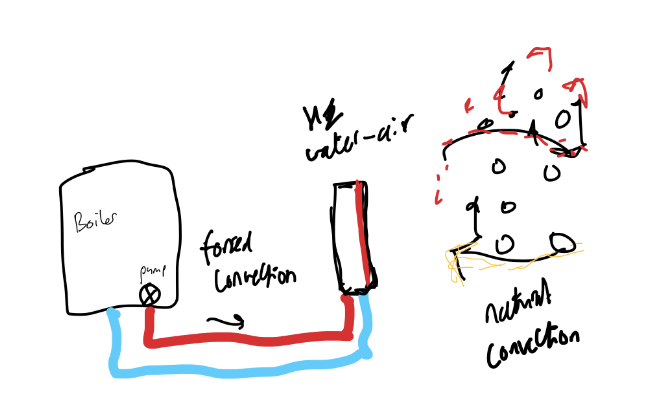 Boiler
pump
forced
convection
HX
water-air
natural
convection